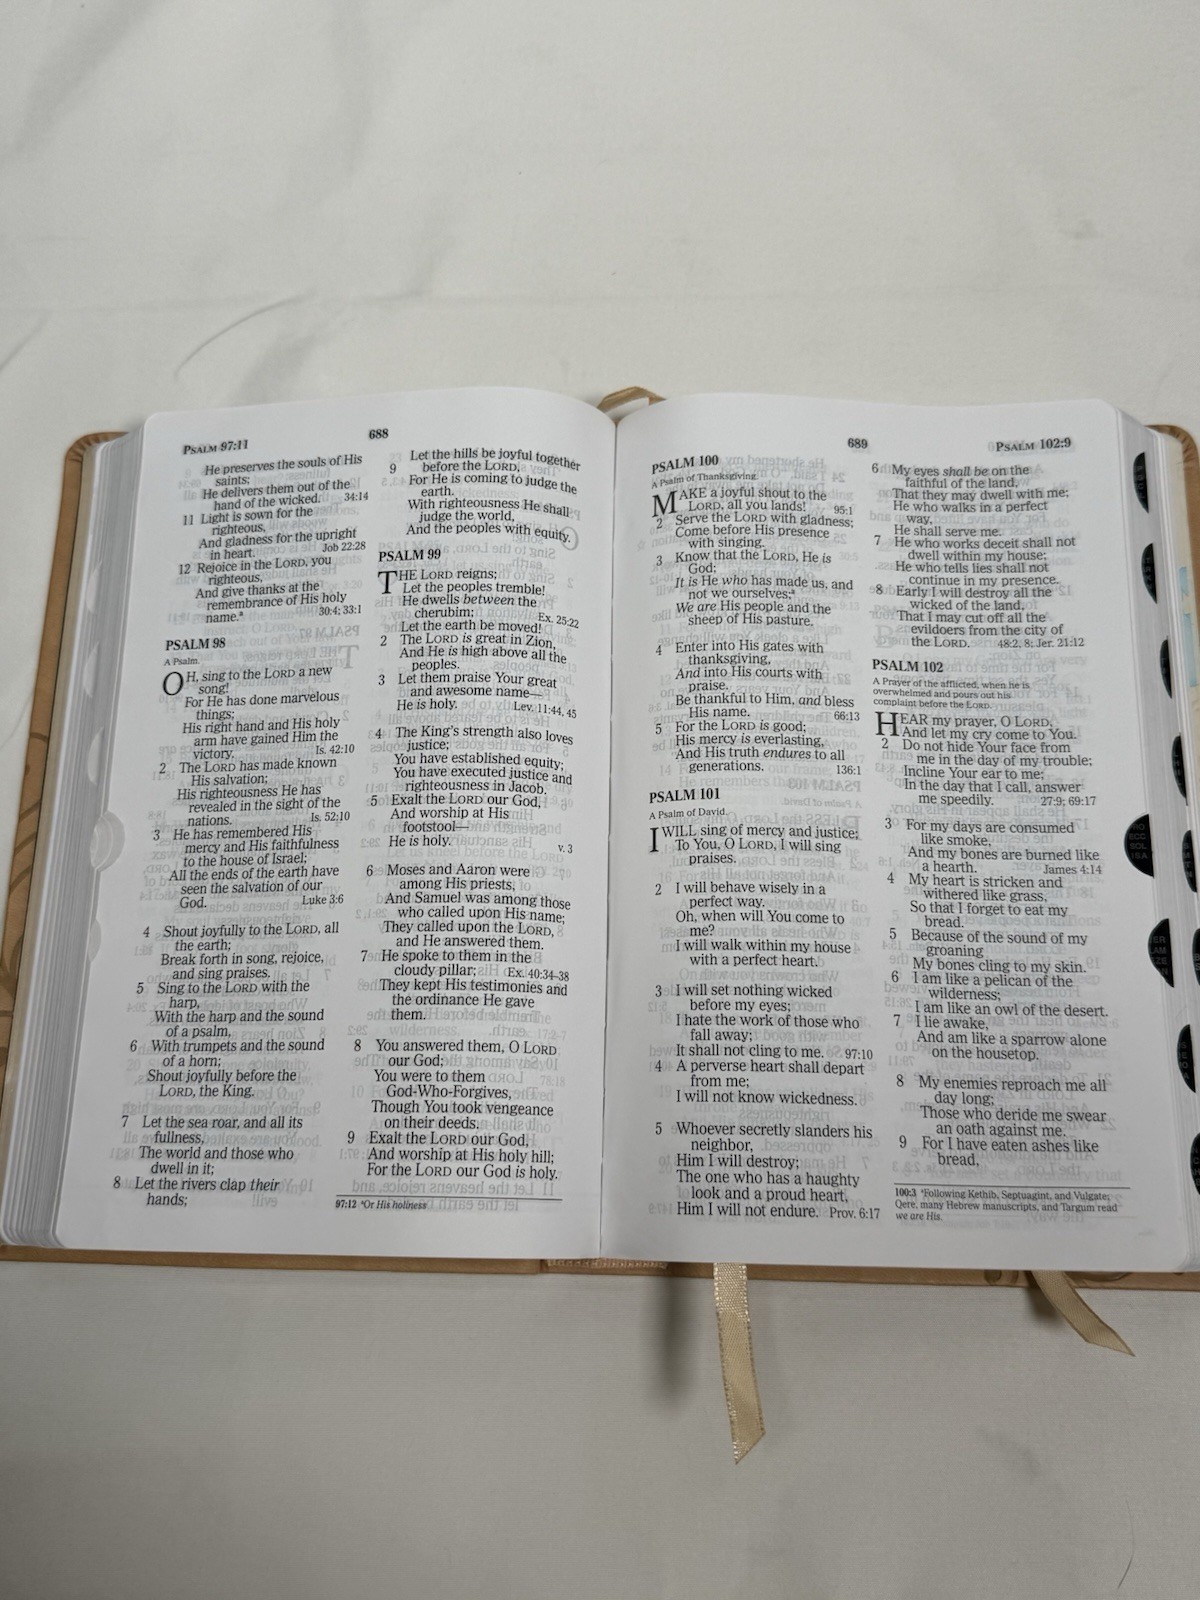 PSALM 97:11
688
He preserves the souls of His
saints;
He delivers them out of the
hand of the wicked. 34:14
11 Light is sown for the
righteous,
And gladness for the upright
in heart. Job 22:28
12 Rejoice in the LORD, you
righteous,
And give thanks at the
remembrance of His holy
name.ª 30:4; 33:1
PSALM 98
A Psalm.
OH, sing to the LORD a new
song!
For He has done marvelous
things;
His right hand and His holy
arm have gained Him the
victory. Is. 42:10
2 The LORD has made known
His salvation;
His righteousness He has
revealed in the sight of the
nations. Is. 52:10
3 He has remembered His
mercy and His faithfulness
to the house of Israel;
All the ends of the earth have
seen the salvation of our
God. Luke 3:6
4 Shout joyfully to the LORD, all
the earth;
Break forth in song, rejoice,
and sing praises.
5 Sing to the LORD with the
harp,
With the harp and the sound
of a psalm,
6 With trumpets and the sound
of a horn;
Shout joyfully before the
LORD, the King.
7 Let the sea roar, and all its
fullness,
The world and those who
dwell in it;
8 Let the rivers clap their
hands;
Let the hills be joyful together
9 before the LORD,
For He is coming to judge the
earth.
With righteousness He shall
judge the world,
And the peoples with equity.
PSALM 99
THE LORD reigns;
Let the peoples tremble!
He dwells between the
cherubim; Ex. 25:22
Let the earth be moved!
2 The LORD is great in Zion,
And He is high above all the
peoples.
3 Let them praise Your great
and awesome name—
He is holy. Lev. 11:44, 45
4 The King's strength also loves
justice;
You have established equity;
You have executed justice and
righteousness in Jacob.
5 Exalt the LORD our God,
And worship at His
footstool—
He is holy. v. 3
6 Moses and Aaron were
among His priests,
And Samuel was among those
who called upon His name;
They called upon the LORD,
and He answered them.
7 He spoke to them in the
cloudy pillar; Ex. 40:34-38
They kept His testimonies and
the ordinance He gave
them.
8 You answered them, O LORD
our God;
You were to them
God-Who-Forgives,
Though You took vengeance
on their deeds.
9 Exalt the LORD our God,
And worship at His holy hill;
For the LORD our God is holy.
97:12 ªOr His holiness
689
PSALM 102:9
PSALM 100
A Psalm of Thanksgiving.
MAKE a joyful shout to the
LORD, all you lands! 95:1
2 Serve the LORD with gladness;
Come before His presence
with singing.
3 Know that the LORD, He is
God;
It is He who has made us, and
not we ourselves;ª
We are His people and the
sheep of His pasture.
4 Enter into His gates with
thanksgiving,
And into His courts with
praise.
Be thankful to Him, and bless
His name. 66:13
5 For the LORD is good;
His mercy is everlasting,
And His truth endures to all
generations. 136:1
PSALM 101
A Psalm of David.
I WILL sing of mercy and justice;
To You, O LORD, I will sing
praises.
2 I will behave wisely in a
perfect way.
Oh, when will You come to
me?
I will walk within my house
with a perfect heart.
3 I will set nothing wicked
before my eyes;
I hate the work of those who
fall away;
It shall not cling to me. 97:10
4 A perverse heart shall depart
from me;
I will not know wickedness.
5 Whoever secretly slanders his
neighbor,
Him I will destroy;
The one who has a haughty
look and a proud heart,
Him I will not endure. Prov. 6:17
6 My eyes shall be on the
faithful of the land,
That they may dwell with me;
He who walks in a perfect
way,
He shall serve me.
7 He who works deceit shall not
dwell within my house;
He who tells lies shall not
continue in my presence.
8 Early I will destroy all the
wicked of the land,
That I may cut off all the
evildoers from the city of
the LORD. 48:2, 8; Jer. 21:12
PSALM 102
A Prayer of the afflicted, when he is
overwhelmed and pours out his
complaint before the LORD.
HEAR my prayer, O LORD,
And let my cry come to You.
2 Do not hide Your face from
me in the day of my trouble;
Incline Your ear to me;
In the day that I call, answer
me speedily. 27:9; 69:17
3 For my days are consumed
like smoke,
And my bones are burned like
a hearth. James 4:14
4 My heart is stricken and
withered like grass,
So that I forget to eat my
bread.
5 Because of the sound of my
groaning
My bones cling to my skin.
6 I am like a pelican of the
wilderness;
I am like an owl of the desert.
7 I lie awake,
And am like a sparrow alone
on the housetop.
8 My enemies reproach me all
day long;
Those who deride me swear
an oath against me.
9 For I have eaten ashes like
bread,
100:3 ªFollowing Kethib, Septuagint, and Vulgate;
Qere, many Hebrew manuscripts, and Targum read
we are His.
ECC
SOL
ISA